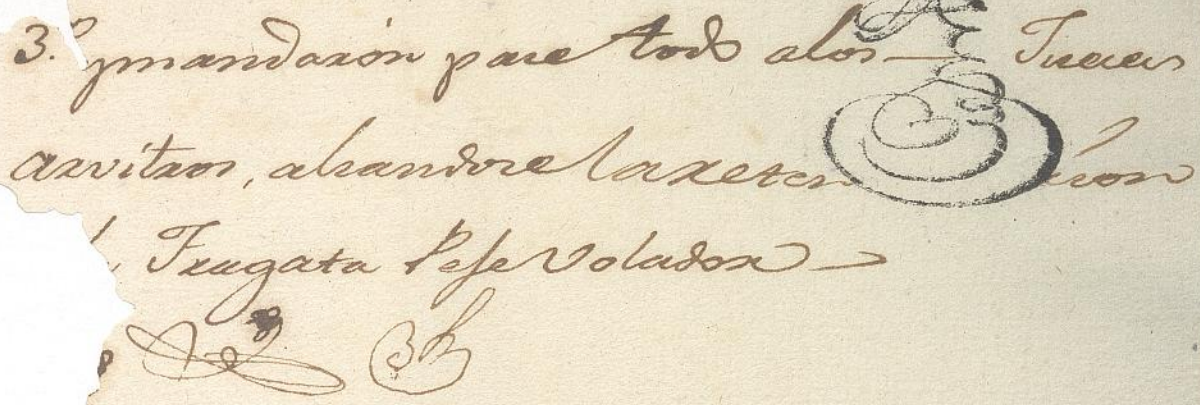 3.º ymandaron pase todo alos — Jueces
arvitros, alsandose la reten cion
Fragata Pese Volador —